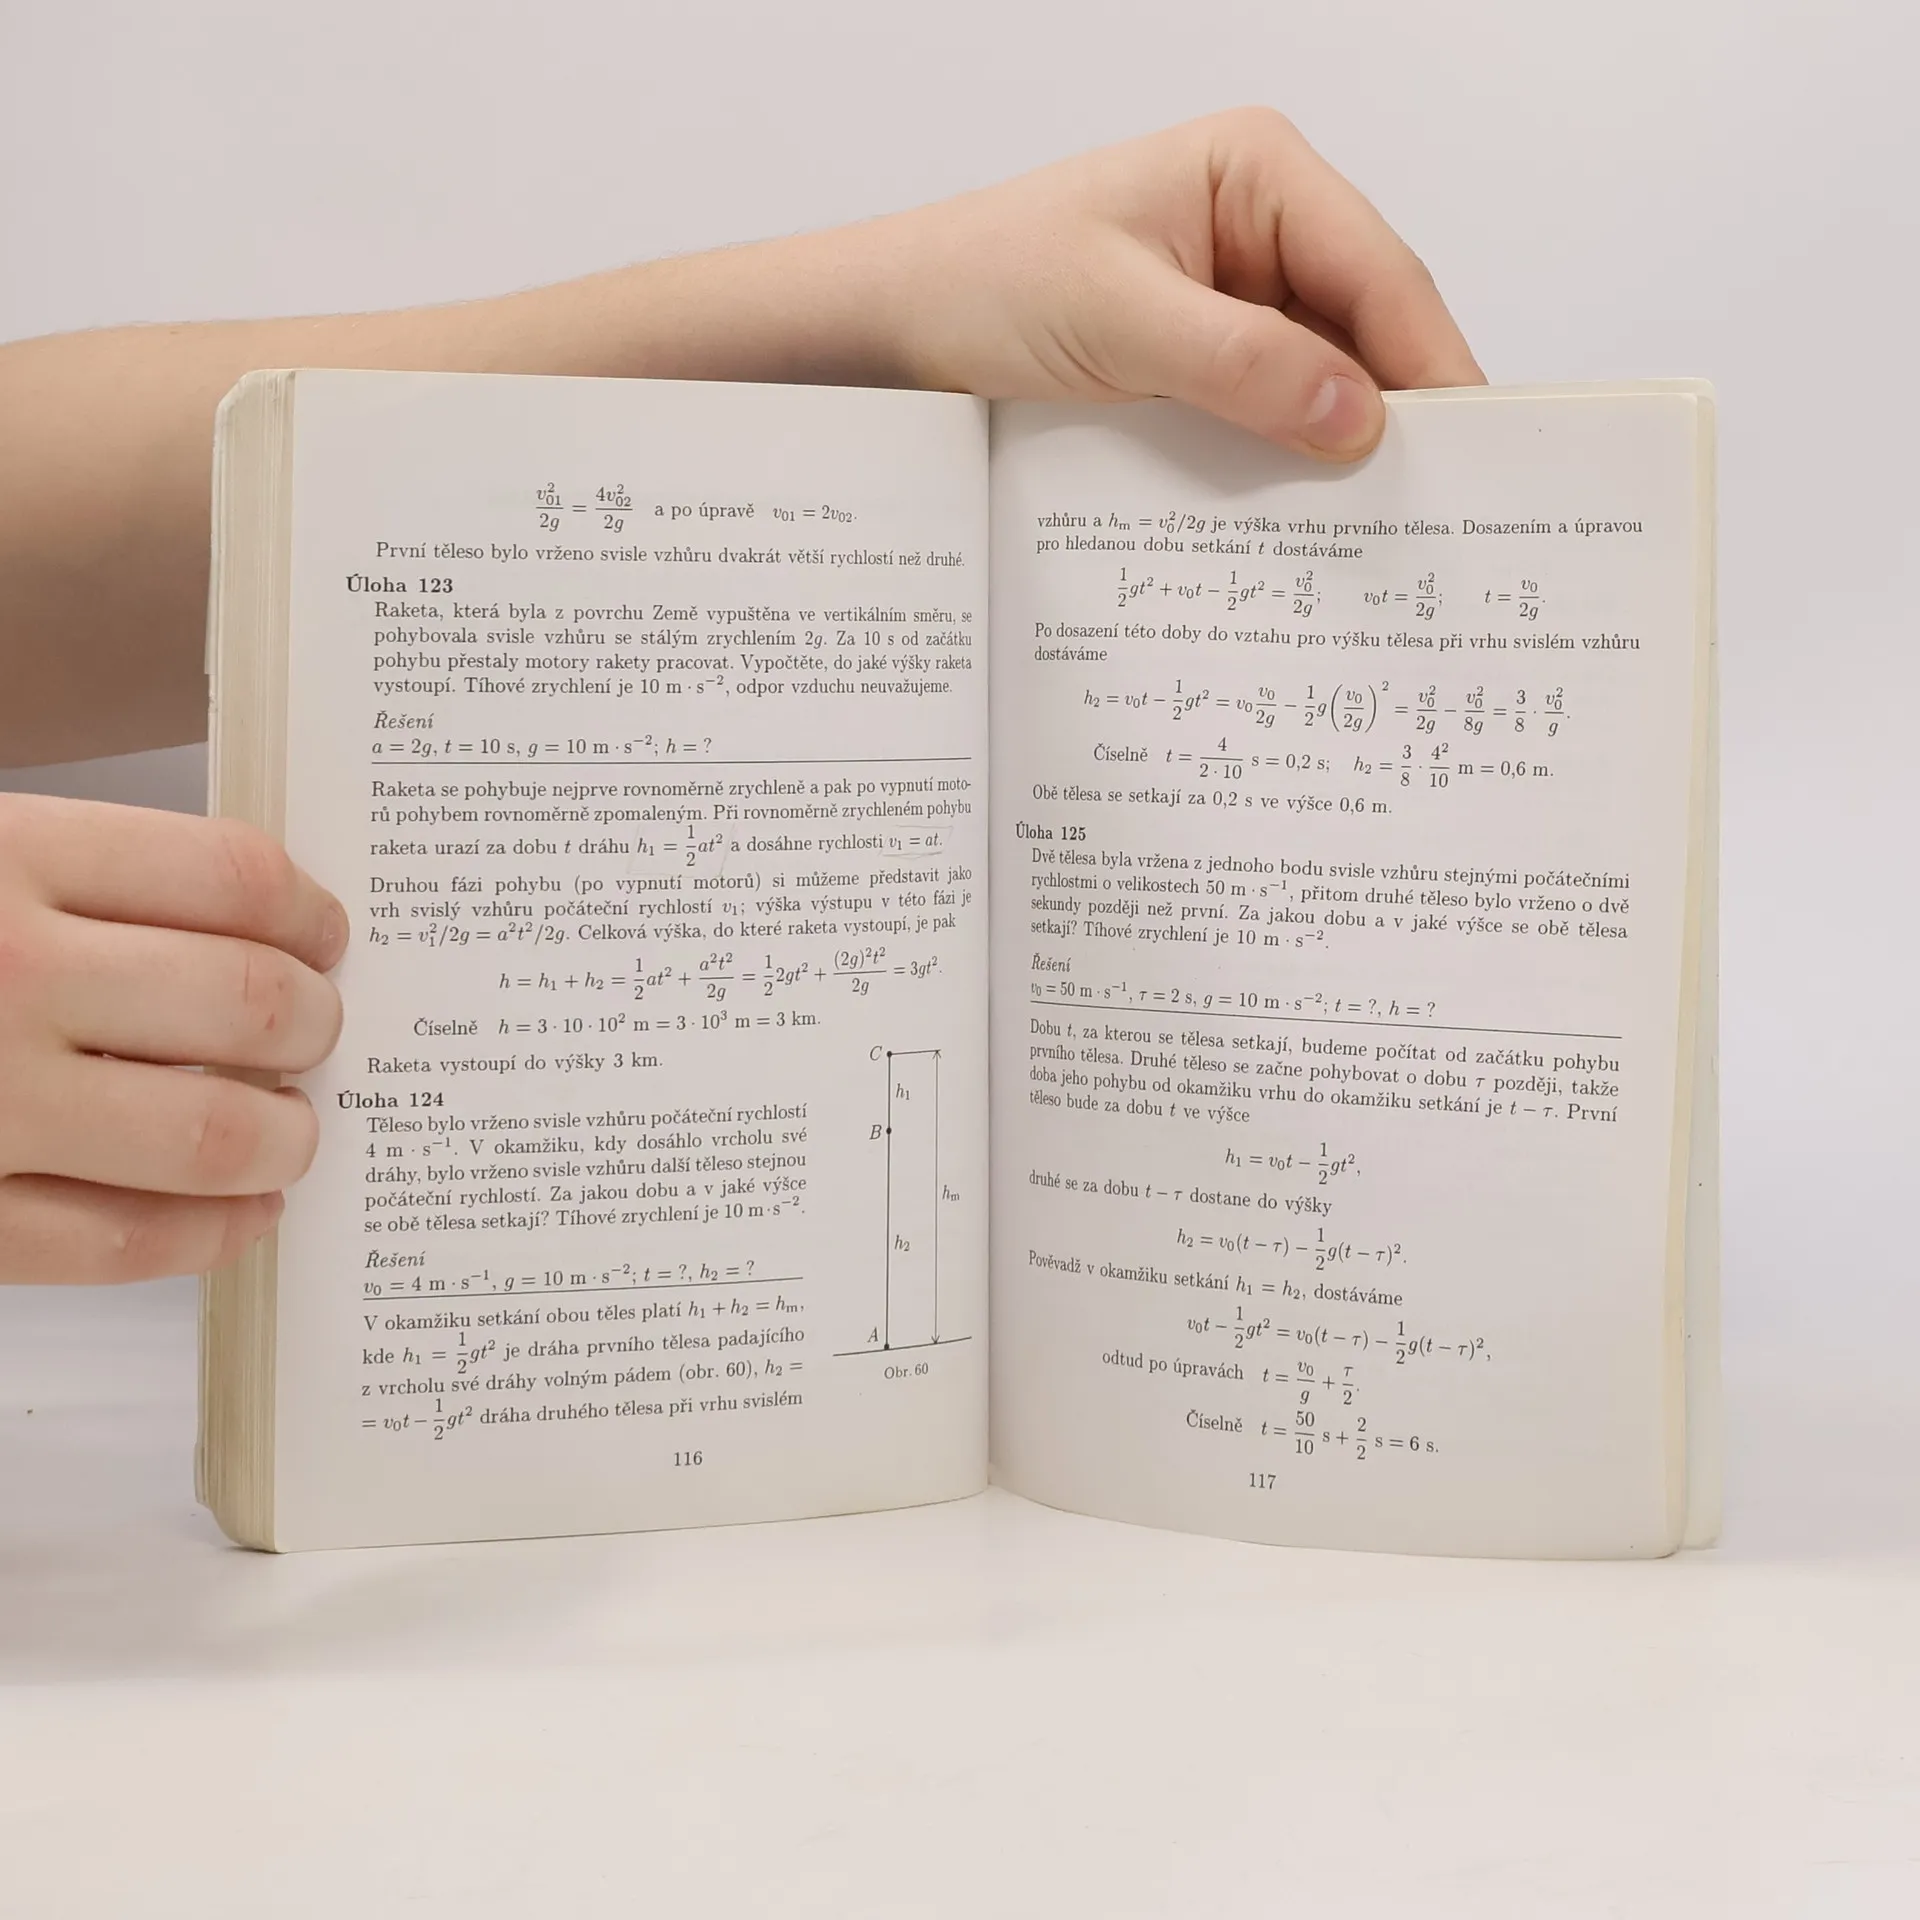 v₀₁²/2g = 4v₀₂²/2g a po úpravě v₀₁ = 2v₀₂.
První těleso bylo vrženo svisle vzhůru dvakrát větší rychlostí než druhé.
Úloha 123
Raketa, která byla z povrchu Země vypuštěna ve vertikálním směru, se
pohybovala svisle vzhůru se stálým zrychlením 2g. Za 10 s od začátku
pohybu přestaly motory rakety pracovat. Vypočtěte, do jaké výšky raketa
vystoupí. Tíhové zrychlení je 10 m · s⁻², odpor vzduchu neuvažujeme.
Řešení
a = 2g, t = 10 s, g = 10 m · s⁻²; h = ?
Raketa se pohybuje nejprve rovnoměrně zrychleně a pak po vypnutí moto-
rů pohybem rovnoměrně zpomaleným. Při rovnoměrně zrychleném pohybu
raketa urazí za dobu t dráhu h₁ = 1/2 at² a dosáhne rychlosti v₁ = at.
Druhou fázi pohybu (po vypnutí motorů) si můžeme představit jako
vrh svislý vzhůru počáteční rychlostí v₁; výška výstupu v této fázi je
h₂ = v₁²/2g = a²t²/2g. Celková výška, do které raketa vystoupí, je pak
h = h₁ + h₂ = 1/2 at² + a²t²/2g = 1/2 2gt² + (2g)²t²/2g = 3gt².
Číselně h = 3 · 10 · 10² m = 3 · 10³ m = 3 km.
Raketa vystoupí do výšky 3 km.
Úloha 124
Těleso bylo vrženo svisle vzhůru počáteční rychlostí
4 m · s⁻¹. V okamžiku, kdy dosáhlo vrcholu své
dráhy, bylo vrženo svisle vzhůru další těleso stejnou
počáteční rychlostí. Za jakou dobu a v jaké výšce
se obě tělesa setkají? Tíhové zrychlení je 10 m·s⁻².
Řešení
v₀ = 4 m · s⁻¹, g = 10 m · s⁻²; t = ?, h₂ = ?
V okamžiku setkání obou těles platí h₁ + h₂ = hₘ,
kde h₁ = 1/2 gt² je dráha prvního tělesa padajícího
z vrcholu své dráhy volným pádem (obr. 60), h₂ =
= v₀t − 1/2 gt² dráha druhého tělesa při vrhu svislém
C
h₁
B
hₘ
h₂
A
Obr. 60
116
vzhůru a hₘ = v₀²/2g je výška vrhu prvního tělesa. Dosazením a úpravou
pro hledanou dobu setkání t dostáváme
1/2 gt² + v₀t − 1/2 gt² = v₀²/2g; v₀t = v₀²/2g; t = v₀/2g.
Po dosazení této doby do vztahu pro výšku tělesa při vrhu svislém vzhůru
dostáváme
h₂ = v₀t − 1/2 gt² = v₀ v₀/2g − 1/2 g(v₀/2g)² = v₀²/2g − v₀²/8g = 3/8 · v₀²/g.
Číselně t = 4/(2 · 10) s = 0,2 s; h₂ = 3/8 · 4²/10 m = 0,6 m.
Obě tělesa se setkají za 0,2 s ve výšce 0,6 m.
Úloha 125
Dvě tělesa byla vržena z jednoho bodu svisle vzhůru stejnými počátečními
rychlostmi o velikostech 50 m · s⁻¹, přitom druhé těleso bylo vrženo o dvě
sekundy později než první. Za jakou dobu a v jaké výšce se obě tělesa
setkají? Tíhové zrychlení je 10 m · s⁻².
Řešení
v₀ = 50 m · s⁻¹, τ = 2 s, g = 10 m · s⁻²; t = ?, h = ?
Dobu t, za kterou se tělesa setkají, budeme počítat od začátku pohybu
prvního tělesa. Druhé těleso se začne pohybovat o dobu τ později, takže
doba jeho pohybu od okamžiku vrhu do okamžiku setkání je t − τ. První
těleso bude za dobu t ve výšce
h₁ = v₀t − 1/2 gt²,
druhé se za dobu t − τ dostane do výšky
h₂ = v₀(t − τ) − 1/2 g(t − τ)².
Pověvadž v okamžiku setkání h₁ = h₂, dostáváme
v₀t − 1/2 gt² = v₀(t − τ) − 1/2 g(t − τ)²,
odtud po úpravách t = v₀/g + τ/2.
Číselně t = 50/10 s + 2/2 s = 6 s.
117